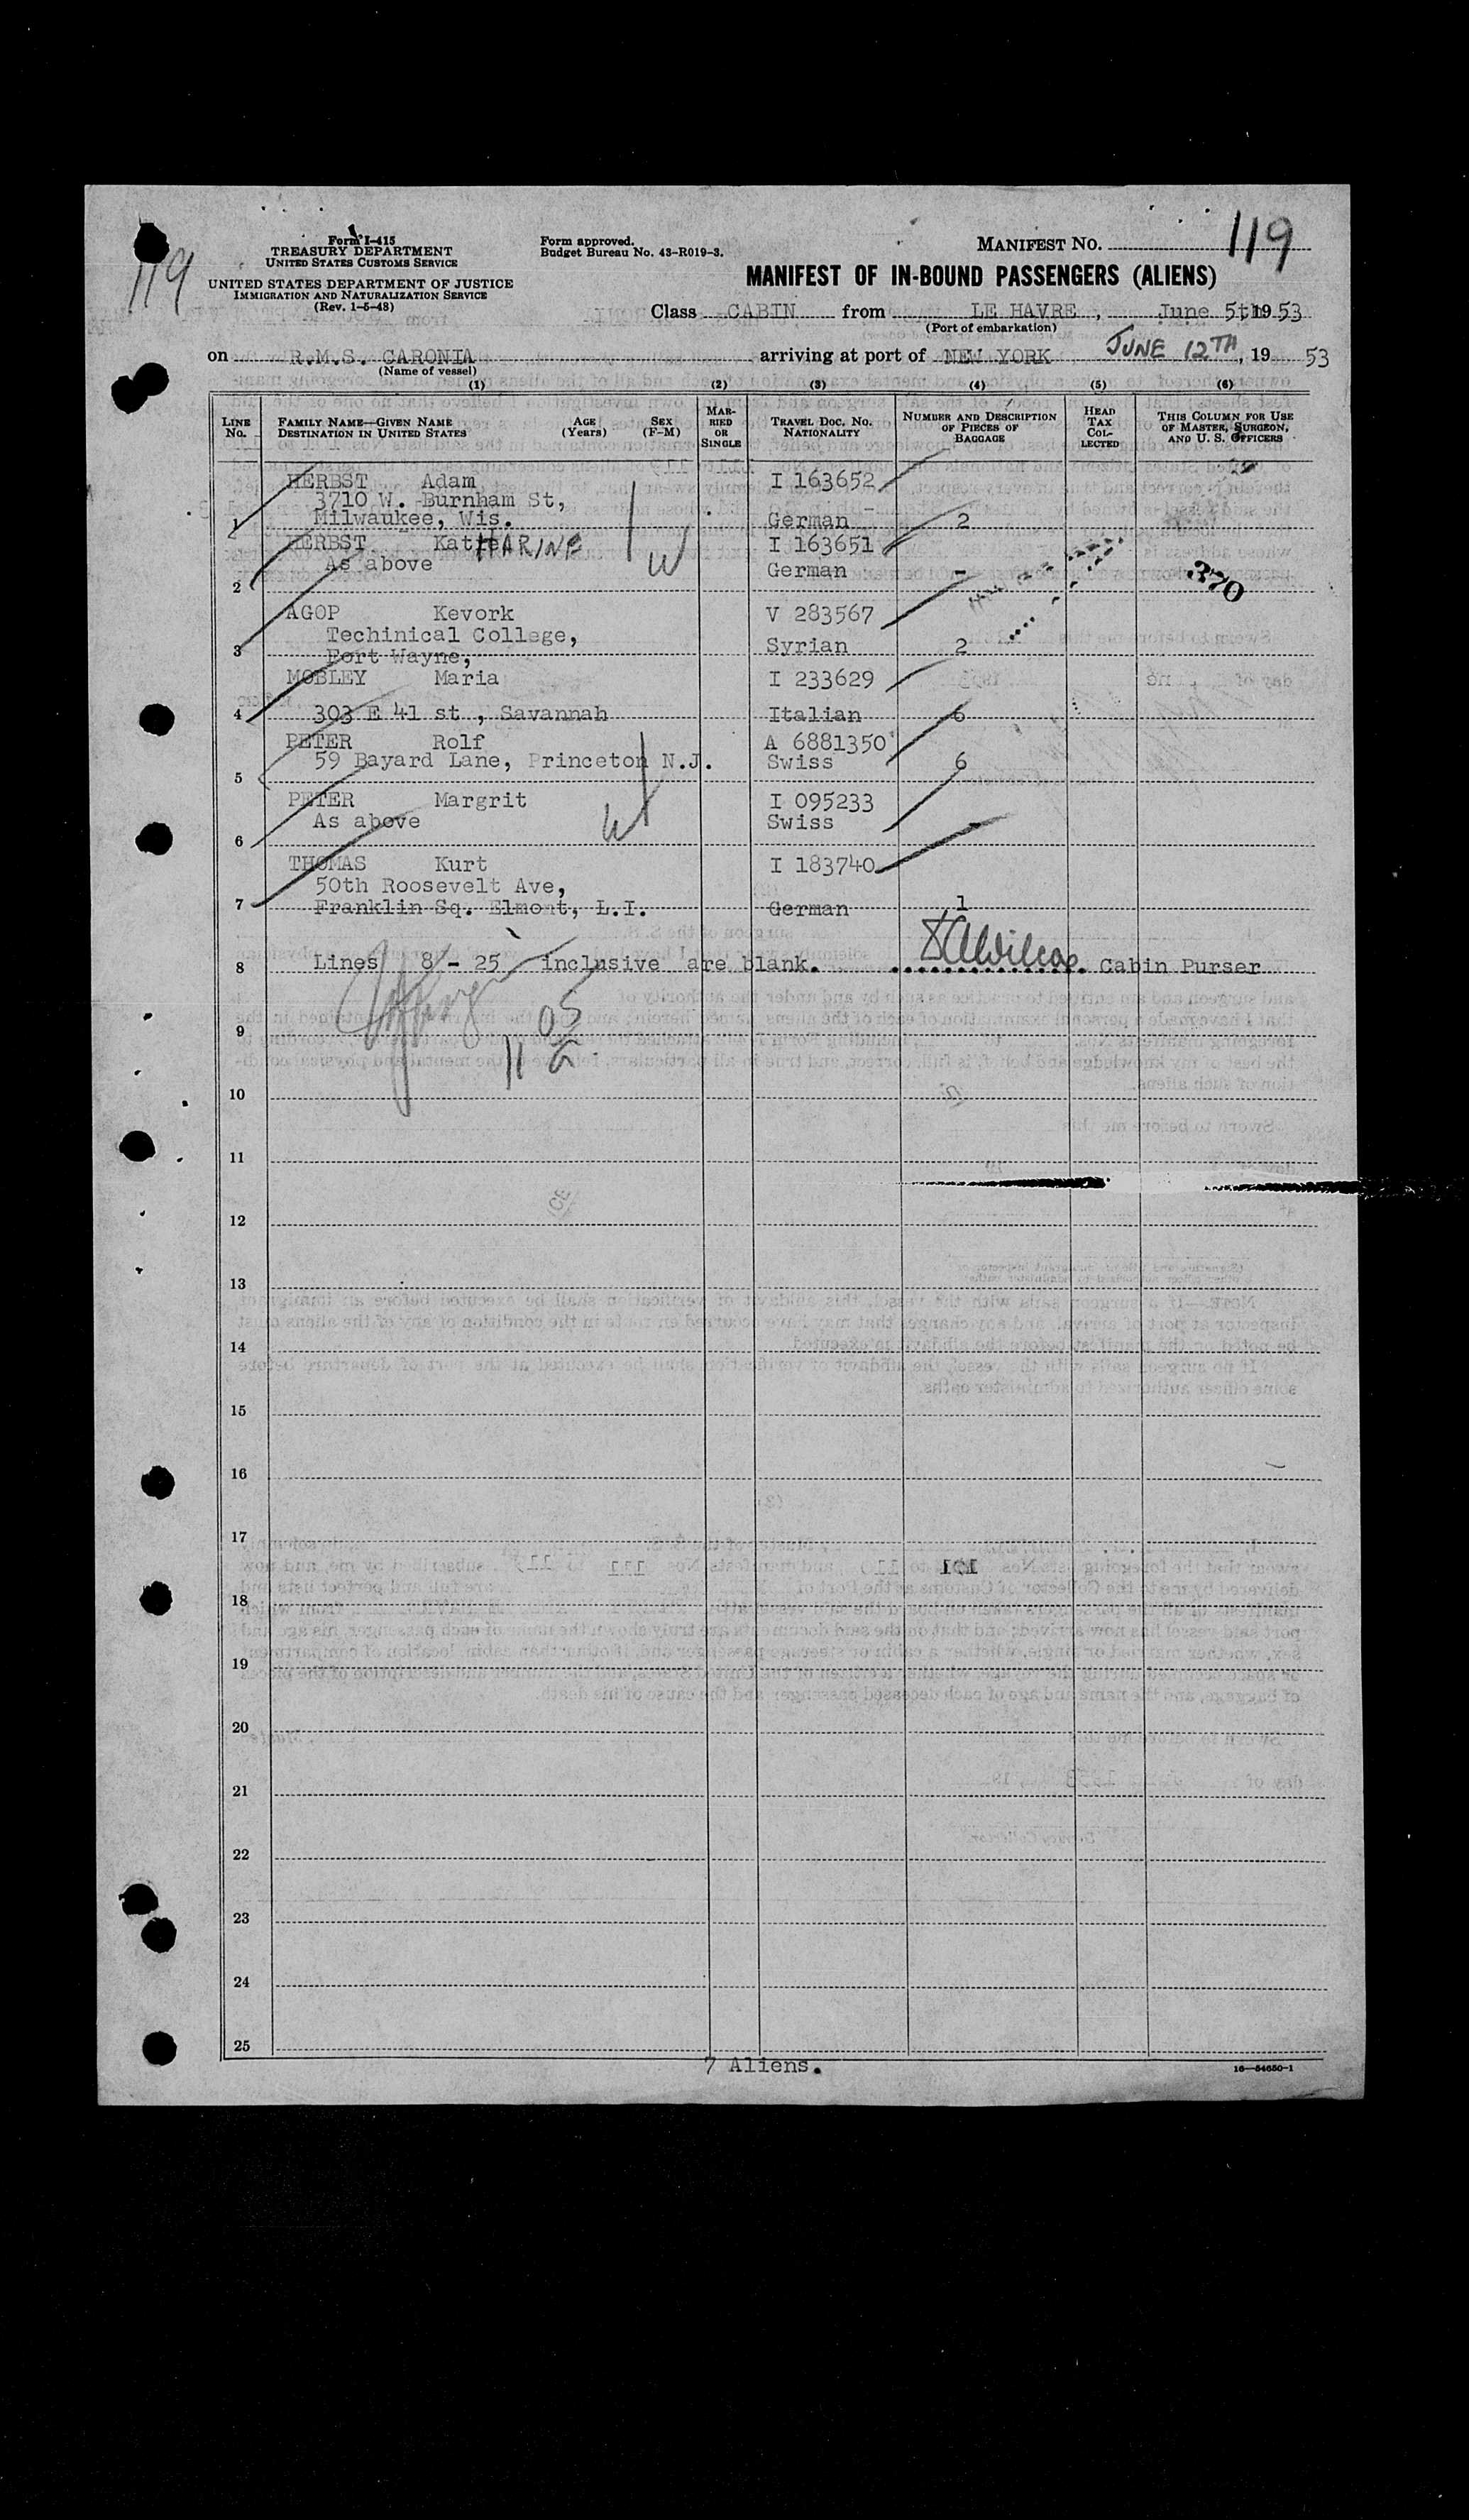 119
Form I-415
TREASURY DEPARTMENT
UNITED STATES CUSTOMS SERVICE
UNITED STATES DEPARTMENT OF JUSTICE
IMMIGRATION AND NATURALIZATION SERVICE
(Rev. 1-5-48)
Form approved.
Budget Bureau No. 43-R019-3.
MANIFEST NO. 119
MANIFEST OF IN-BOUND PASSENGERS (ALIENS)
Class CABIN from LE HAVRE, June 5th 1953
(Port of embarkation)
on R.M.S. CARONIA arriving at port of NEW YORK JUNE 12TH, 19 53
(Name of vessel)
(1) (2) (3) (4) (5) (6)
LINE No. FAMILY NAME—GIVEN NAME DESTINATION IN UNITED STATES AGE (Years) SEX (F-M) MARRIED OR SINGLE TRAVEL DOC. NO. NATIONALITY NUMBER AND DESCRIPTION OF PIECES OF BAGGAGE HEAD TAX COLLECTED THIS COLUMN FOR USE OF MASTER, SURGEON, AND U. S. OFFICERS
HERBST Adam I 163652
3710 W. Burnham St,
1 Milwaukee, Wis. German 2
HERBST KatHARINE I 163651
As above W German - 370
2
AGOP Kevork V 283567
Techinical College, Syrian 2
3 Fort Wayne,
MOBLEY Maria I 233629
4 303 E 41 st , Savannah Italian 6
PETER Rolf A 6881350
59 Bayard Lane, Princeton N.J. Swiss 6
5
PETER Margrit I 095233
As above W Swiss -
6
THOMAS Kurt I 183740
50th Roosevelt Ave,
7 Franklin Sq. Elmont, L.I. German 1
8 Lines 8 - 25 inclusive are blank. Cabin Purser
9 05
11
10
11
12
13
14
15
16
17
18
19
20
21
22
23
24
25
7 Aliens.
16—54650-1